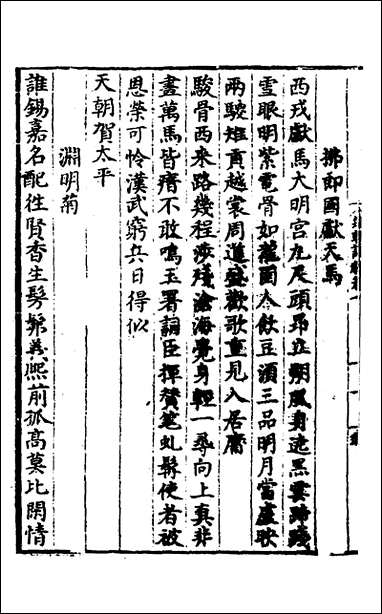 拂郎國獻天馬
西戎獻馬大明宮九尺頭昂立朔風身迭黑雲蹄踐
雪眼明紫電骨如龍圉人飲豆須三品明月當盧映
兩騣雉貢越裳周道盛歡歌重見入居庸
駿骨西來路幾程涉殘滄海覺身輕一尋向上真非
盡萬馬皆瘖不敢鳴玉署詞臣揮贊筆虬髯使者被
恩榮可怜漢武窮兵日得似
天朝賀太平
淵明菊
誰錫嘉名配徃賢香生髣髴義熙前孤高莫比閑情